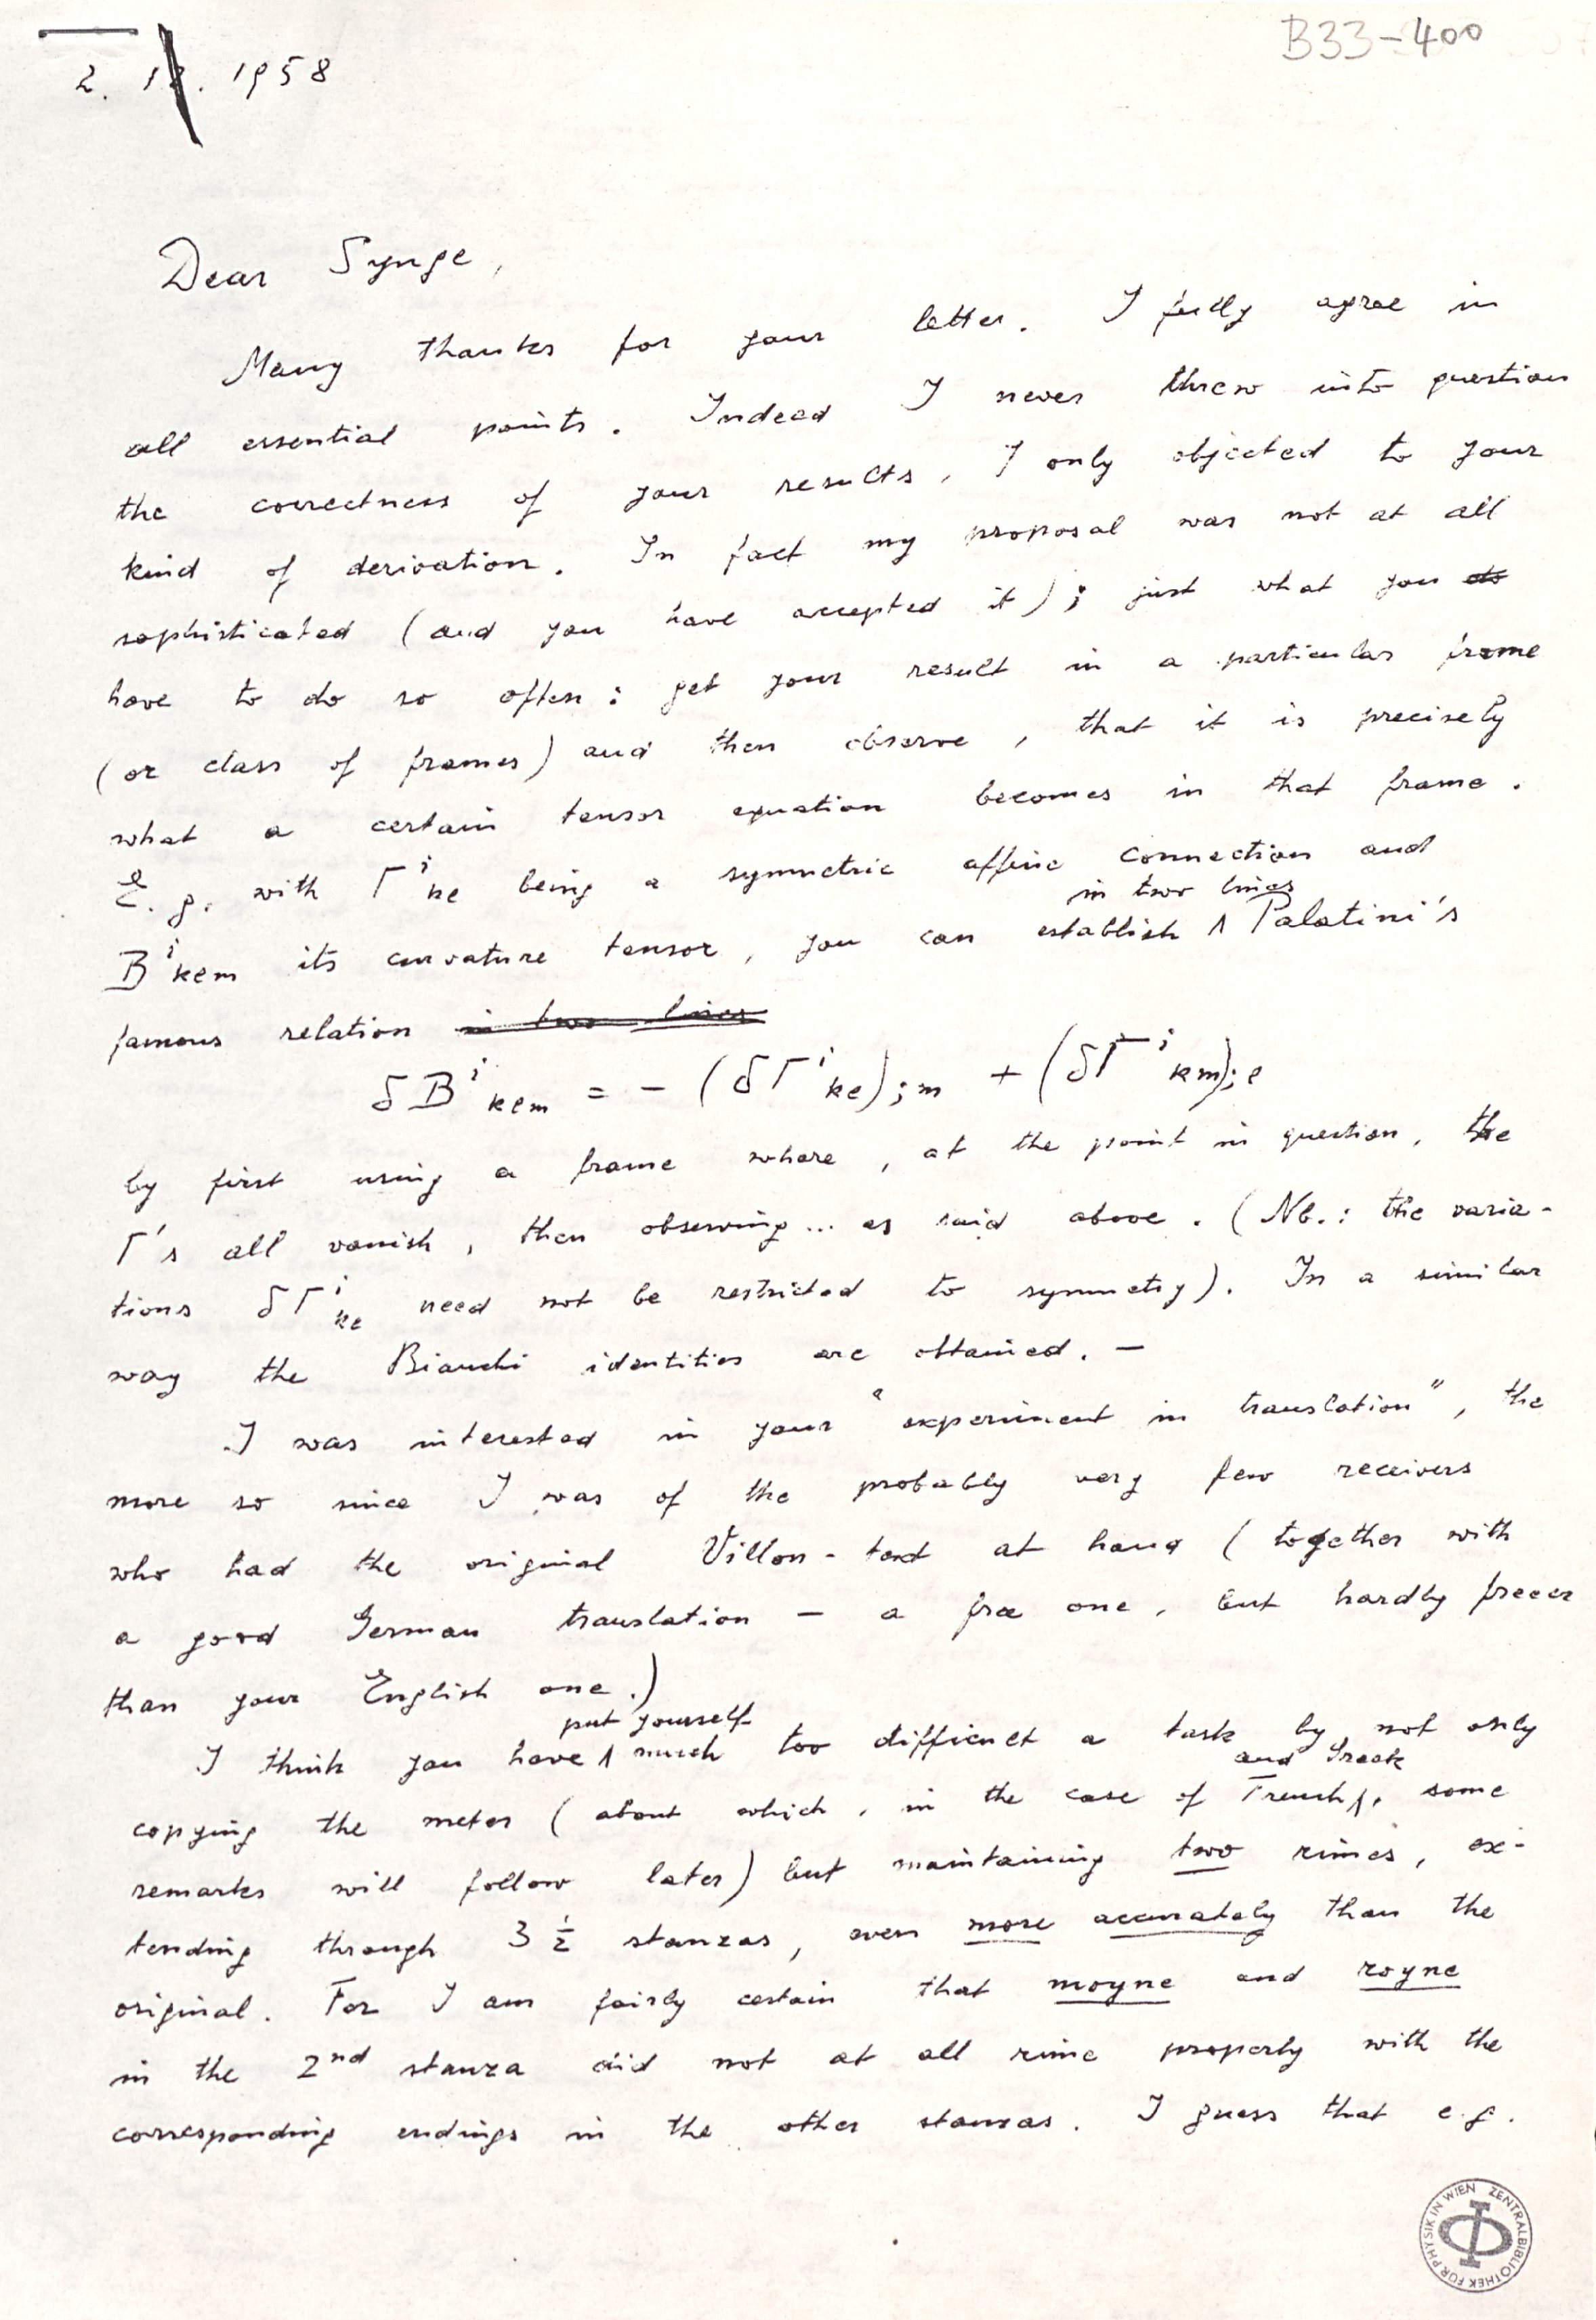 B33-400
2. 12. 1958
Dear Synge,
Many thanks for your letter. I fully agree in
all essential points. Indeed I never threw into question
the correctness of your results, I only objected to your
kind of derivation. In fact my proposal was not at all
sophisticated (and you have accepted it); just what you do
have to do so often: get your result in a particular frame
(or class of frames) and then observe, that it is precisely
what a certain tensor equation becomes in that frame.
E.g. with Γ^i_{kl} being a symmetric affine connection and
in two lines
B^i_{klm} its curvature tensor, you can establish ∧ Palatini's
famous relation in two lines
δB^i_{klm} = − (δΓ^i_{kl});m + (δΓ^i_{km});l
by first using a frame where, at the point in question, the
Γ's all vanish, then observing... as said above. (Nb.: the varia-
tions δΓ^i_{kl} need not be restricted to symmetry). In a similar
way the Bianchi identities are obtained. —
I was interested in your "experiment in translation", the
more so since I was of the probably very few receivers
who had the original Villon-text at hand (together with
a good German translation — a free one, but hardly freeer
than your English one.)
put yourself
I think you have ∧ much too difficult a task by not only
and Greek
copying the meter (about which, in the case of French ∧, some
remarks will follow later) but maintaining two rimes, ex-
tending through 3 1/2 stanzas, even more accurately than the
original. For I am fairly certain that moyne and royne
in the 2nd stanza did not at all rime properly with the
corresponding endings in the other stanzas. I guess that e.g.
ZENTRALBIBLIOTHEK FÜR PHYSIK IN WIEN